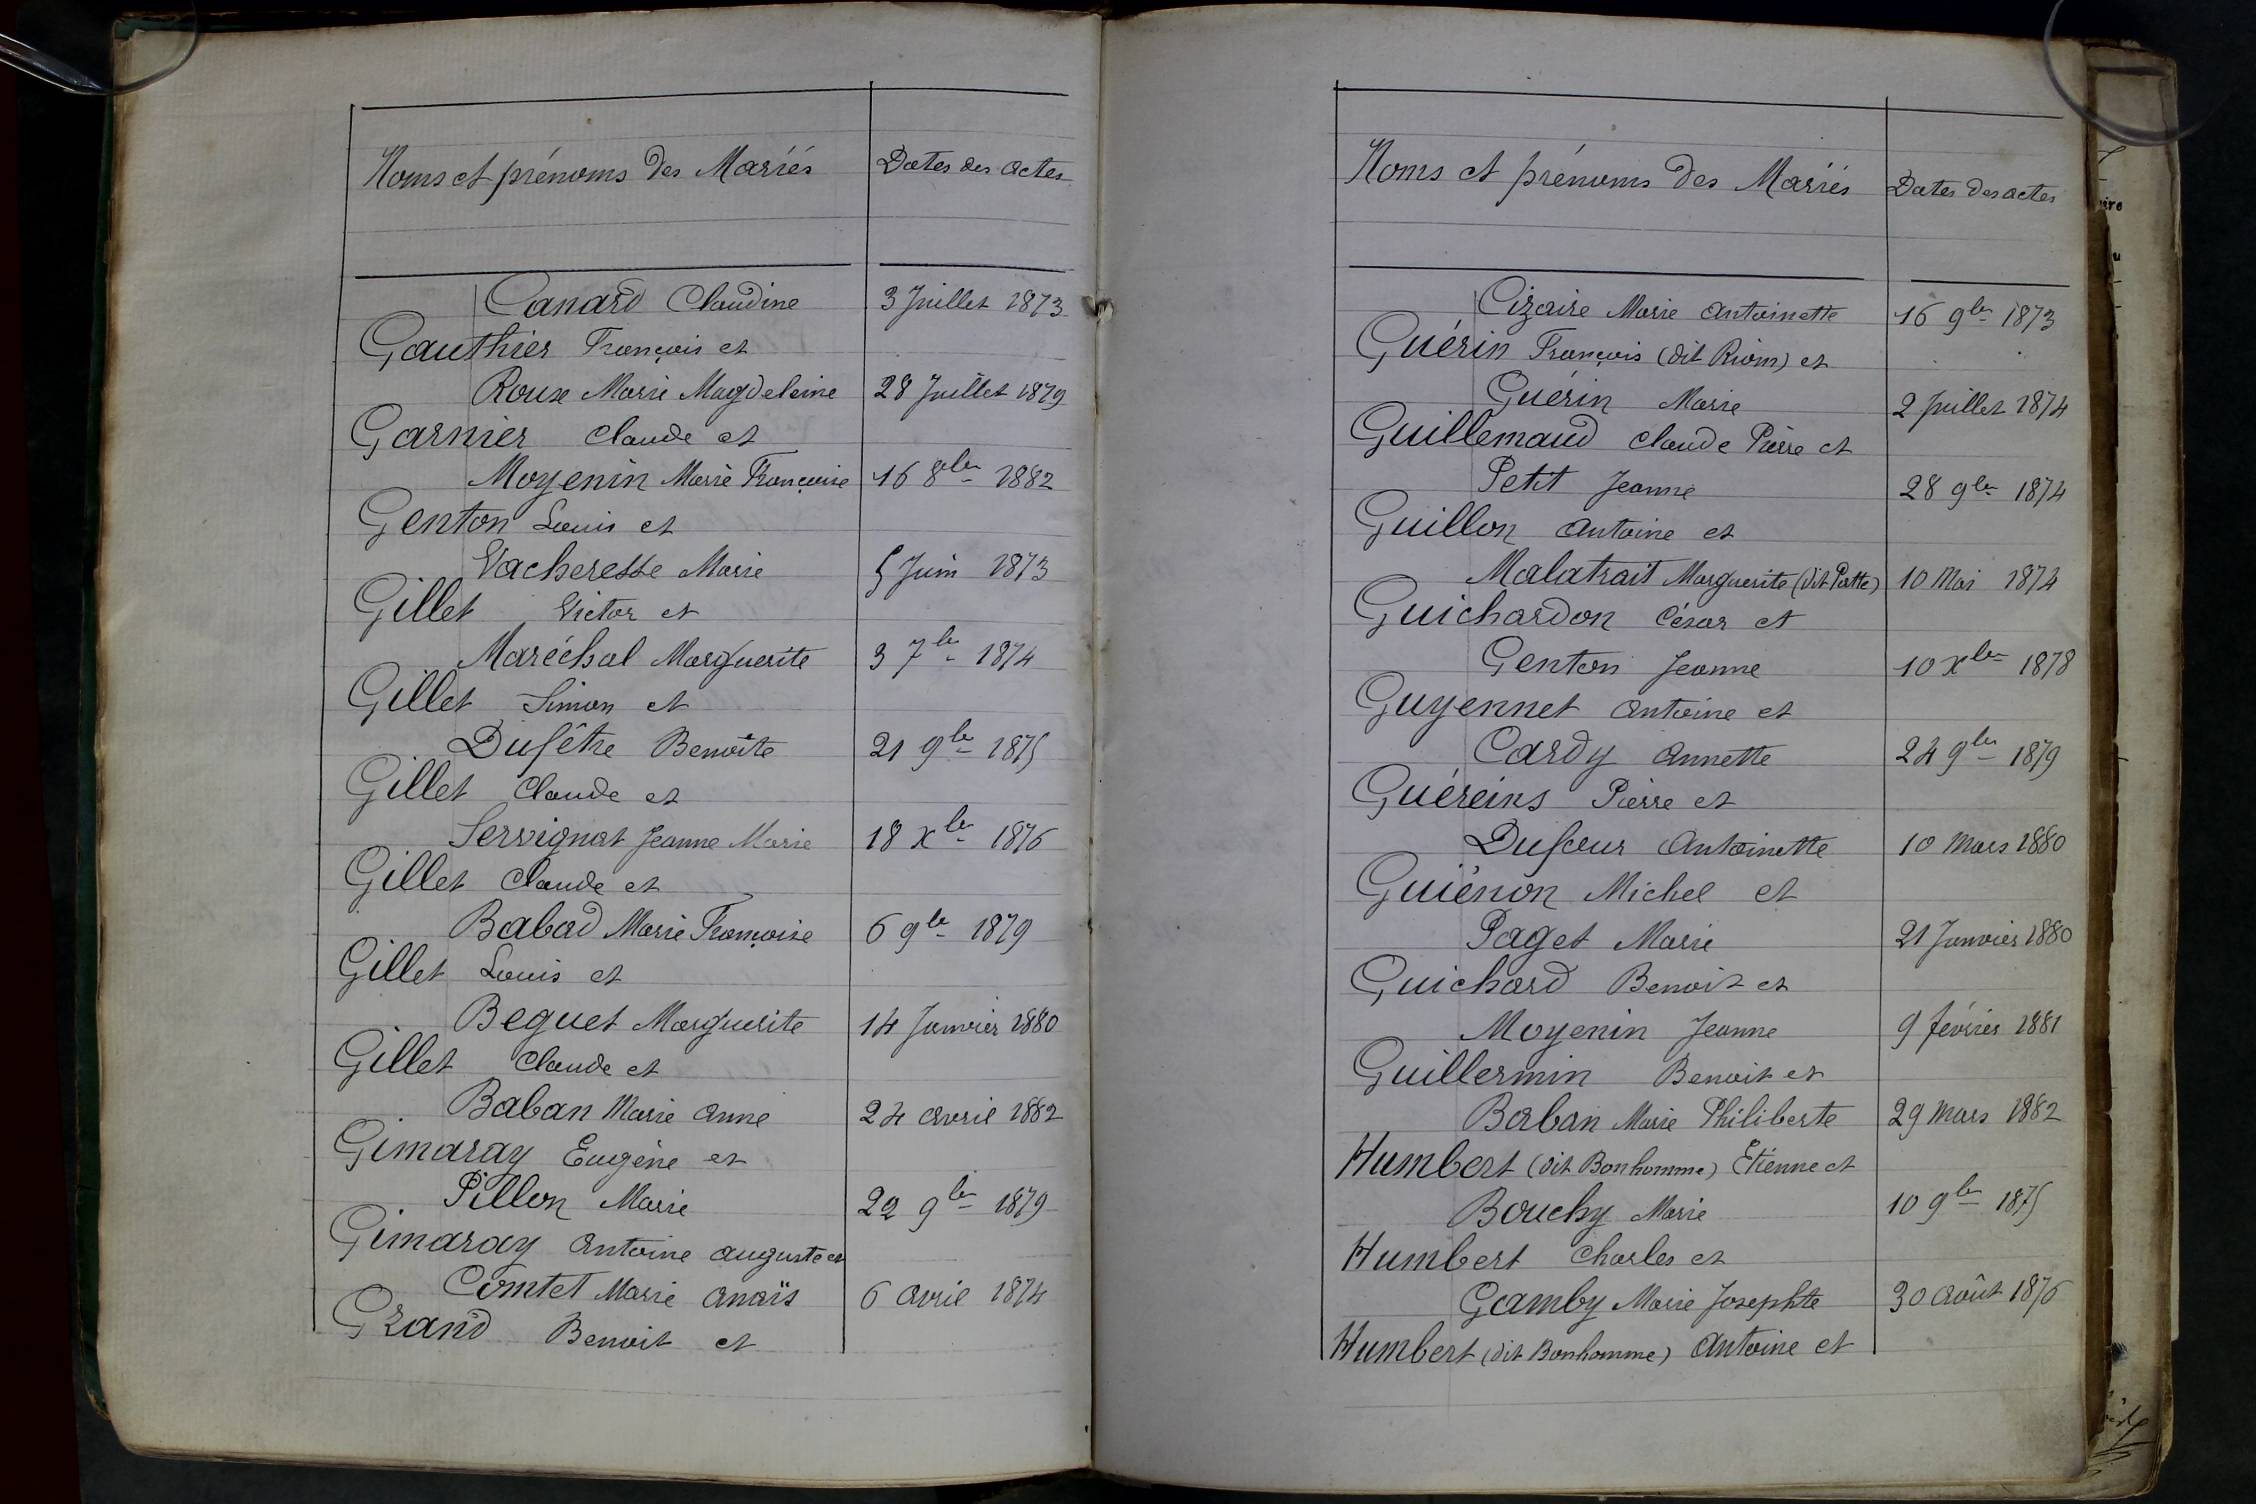 Noms et prénoms des Mariés Dates des actes
Canard Claudine 3 Juillet 1873
Gauthier François et
Roux Marie Magdeleine 28 Juillet 1879
Garnier Claude et
Moyenin Marie Françoise 16 8bre 1882
Genton Louis et
Vacheresse Marie 5 Juin 1873
Gillet Victor et
Maréchal Marguerite 3 7bre 1874
Gillet Simon et
Dufêtre Benoîte 21 9bre 1875
Gillet Claude et
Servignat Jeanne Marie 18 Xbre 1876
Gillet Claude et
Babad Marie Françoise 6 9bre 1879
Gillet Louis et
Beguet Marguerite 14 Janvier 1880
Gillet Claude et
Baban Marie Anne 24 avril 1882
Gimaray Eugène et
Pillon Marie 22 9bre 1879
Gimaray Antoine Auguste et
Comtet Marie Anaïs 6 avril 1874
Grand Benoit et
Noms et prénoms des Mariés Dates des actes
Cizaire Marie Antoinette 16 9bre 1873
Guérin François (dit Riom) et
Guérin Marie 2 Juillet 1874
Guillemaud Claude Pierre et
Petit Jeanne 28 9bre 1874
Guillon Antoine et
Malatrait Marguerite (dit Patte) 10 Mai 1874
Guichardon César et
Genton Jeanne 10 Xbre 1878
Guyennet Antoine et
Cardy Annette 24 9bre 1879
Guéreins Pierre et
Dufour Antoinette 10 Mars 1880
Guiénon Michel et
Paget Marie 21 Janvier 1880
Guichard Benoit et
Moyenin Jeanne 9 février 1881
Guillermin Benoit et
Baban Marie Philiberte 29 Mars 1882
Humbert (dit Bonhomme) Etienne et
Bouchy Marie 10 9bre 1875
Humbert Charles et
Gamby Marie Josephte 30 Août 1876
Humbert (dit Bonhomme) Antoine et